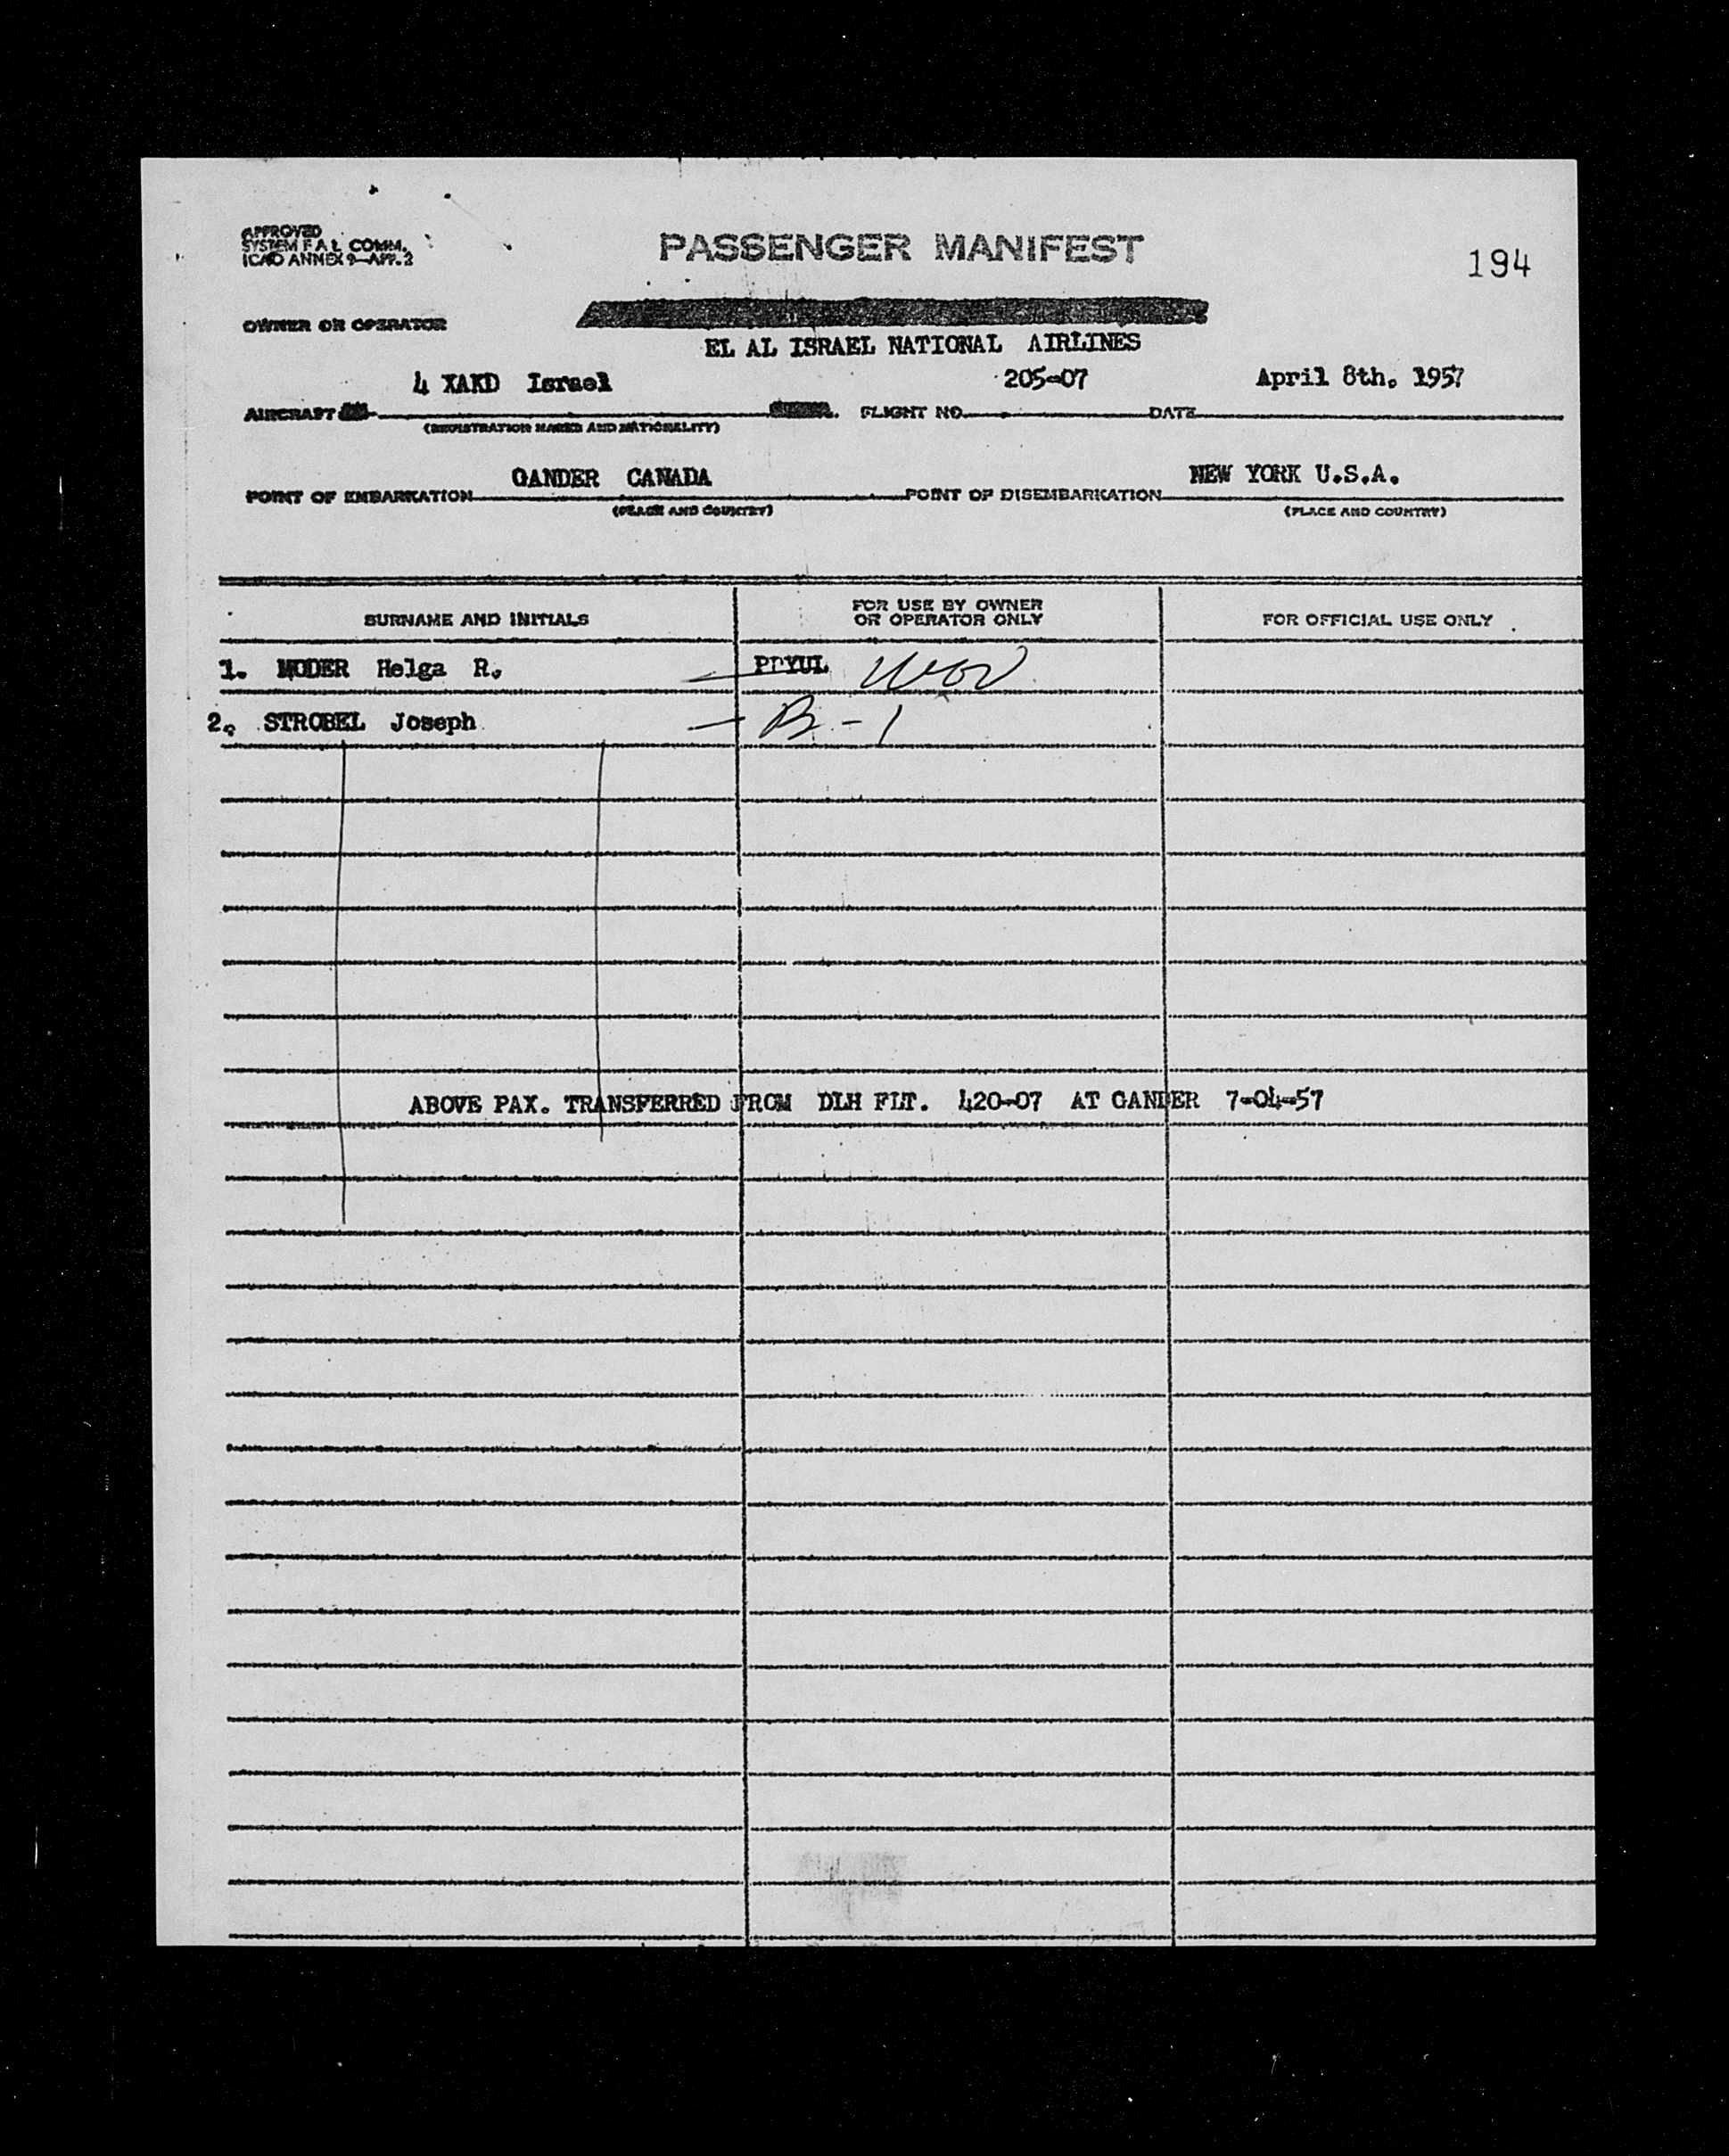 APPROVED
SYSTEM F.A.L. COMM.
ICAO ANNEX 9—APP. 2
PASSENGER MANIFEST
194
OWNER OR OPERATOR
EL AL ISRAEL NATIONAL AIRLINES
4 XAKD Israel 205-07 April 8th. 1957
AIRCRAFT FLIGHT NO. DATE
(REGISTRATION MARKS AND NATIONALITY)
GANDER CANADA NEW YORK U.S.A.
POINT OF EMBARKATION POINT OF DISEMBARKATION
(PLACE AND COUNTRY) (PLACE AND COUNTRY)
SURNAME AND INITIALS
FOR USE BY OWNER
OR OPERATOR ONLY
FOR OFFICIAL USE ONLY
1. MODER Helga R.
2. STROBEL Joseph B-1
ABOVE PAX. TRANSFERRED FROM DLH FLT. 420-07 AT GANDER 7-04-57